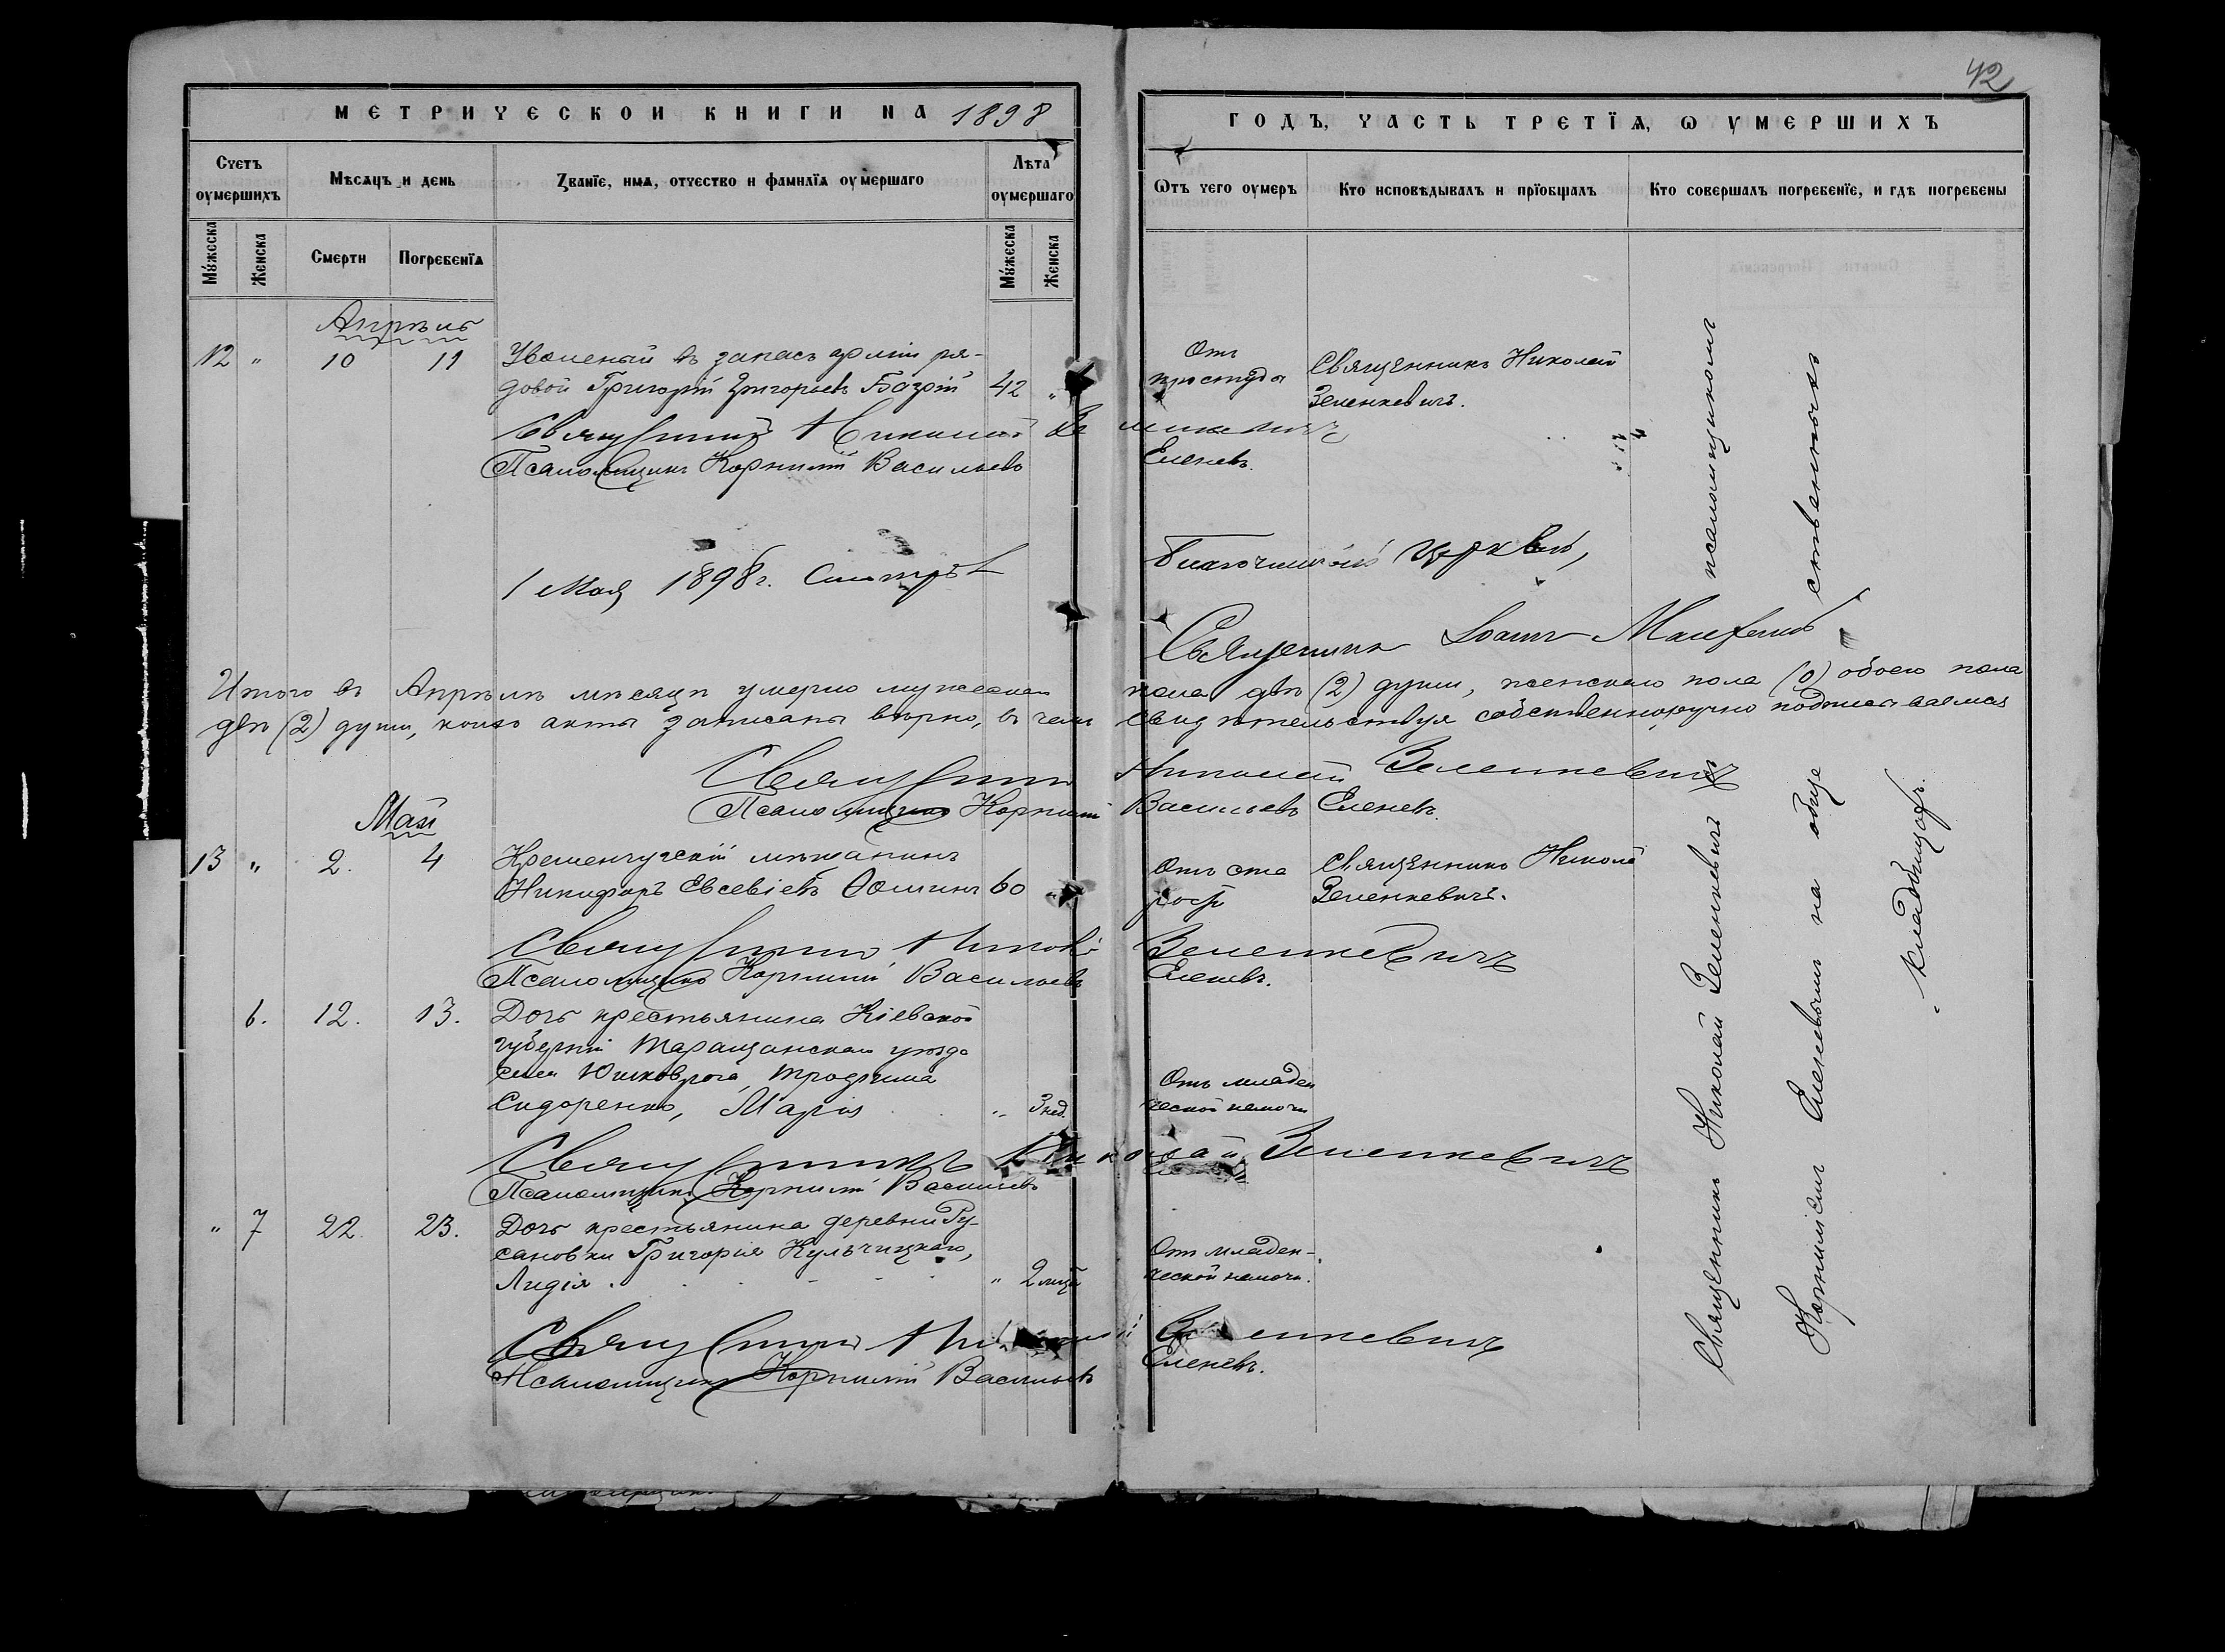 42
МЕТРИЧЕСКОЙ КНИГИ НА 1898
ГОДЪ, ЧАСТЬ ТРЕТЇѦ, Ѡ ОУМЕРШИХЪ
Счетъ оумершихъ
Мѣсѧцъ и день
Званїе, имѧ, отчество и фамилїѧ оумершаго
Лѣта оумершаго
Ѿтъ чего оумеръ
Кто исповѣдывалъ и прїобщалъ
Кто совершалъ погребенїе, и гдѣ погребены
Мꙋжеска
Женска
Смерти
Погребенїѧ
Мꙋжеска
Женска
Апрѣль
12 " 10 11 Уволеный въ запасъ арміи ря- Отъ Священникъ Николай
довой Григорій Григорьевъ 42 " простуды Зеленкевичъ.
Священникъ Николай Зеленкевичъ
Псаломщикъ Корнилій Васильевъ Еленевъ.
1 Мая 1898 г. Смотрѣлъ Благочинный церквей,
Священникъ Іоаннъ
Итого въ Апрѣлѣ мѣсяцѣ умерло мужескаго пола двѣ (2) души, женскаго пола (0) обоего пола
двѣ (2) души, коихъ акты записаны вѣрно, въ чемъ свидѣтельствуя собственноручно подписываемся
Священникъ Николай Зеленкевичъ
Псаломщикъ Корнилій Васильевъ Еленевъ.
Май
13 " 2. 4 Кременчугскій мѣщанинъ Отъ ста Священникъ Николай
Никифоръ Евсевіевъ Ѳоминъ 60 " рости Зеленкевичъ.
Священникъ Николай Зеленкевичъ
Псаломщикъ Корнилій Васильевъ Еленевъ.
6. 12. 13. Дочь крестьянина Кіевской
губерніи Таращанскаго уѣзда
села Юшковрога, Трофима Отъ младен
Сидоренко, Марія " 3 нед. ческой немочи
Священникъ Николай Зеленкевичъ
Псаломщикъ Корнилій Васильевъ
" 7 22. 23. Дочь крестьянина деревни Ру-
сановки Григорія Кульчицкаго, Отъ младен-
Лидія. " 2 мѣс. ческой немочи.
Священникъ Николай Зеленкевичъ
Псаломщикъ Корнилій Васильевъ Еленевъ.
Священникъ Николай Зеленкевичъ съ псаломщикомъ
Корниліемъ Еленевымъ на обще ственныхъ
кладбищахъ.